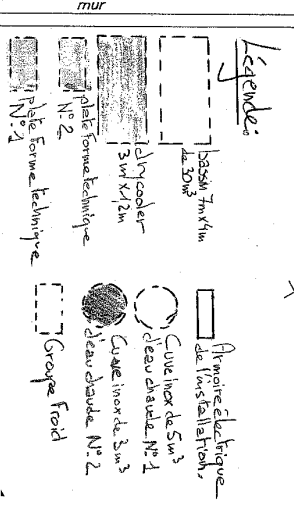 mur
Légende:
bassin 7m x 4m
de 30m³
drycooler
3m x 1,2m
plate forme technique
N°2
plate forme technique
N°1
Armoire électrique
de l'installation.
Cuve inox de 5m³
d'eau chaude N°1
Cuve inox de 3m³
d'eau chaude N°2
Groupe Froid